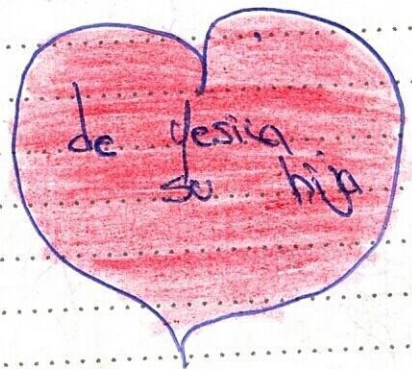 de yesica
su hija